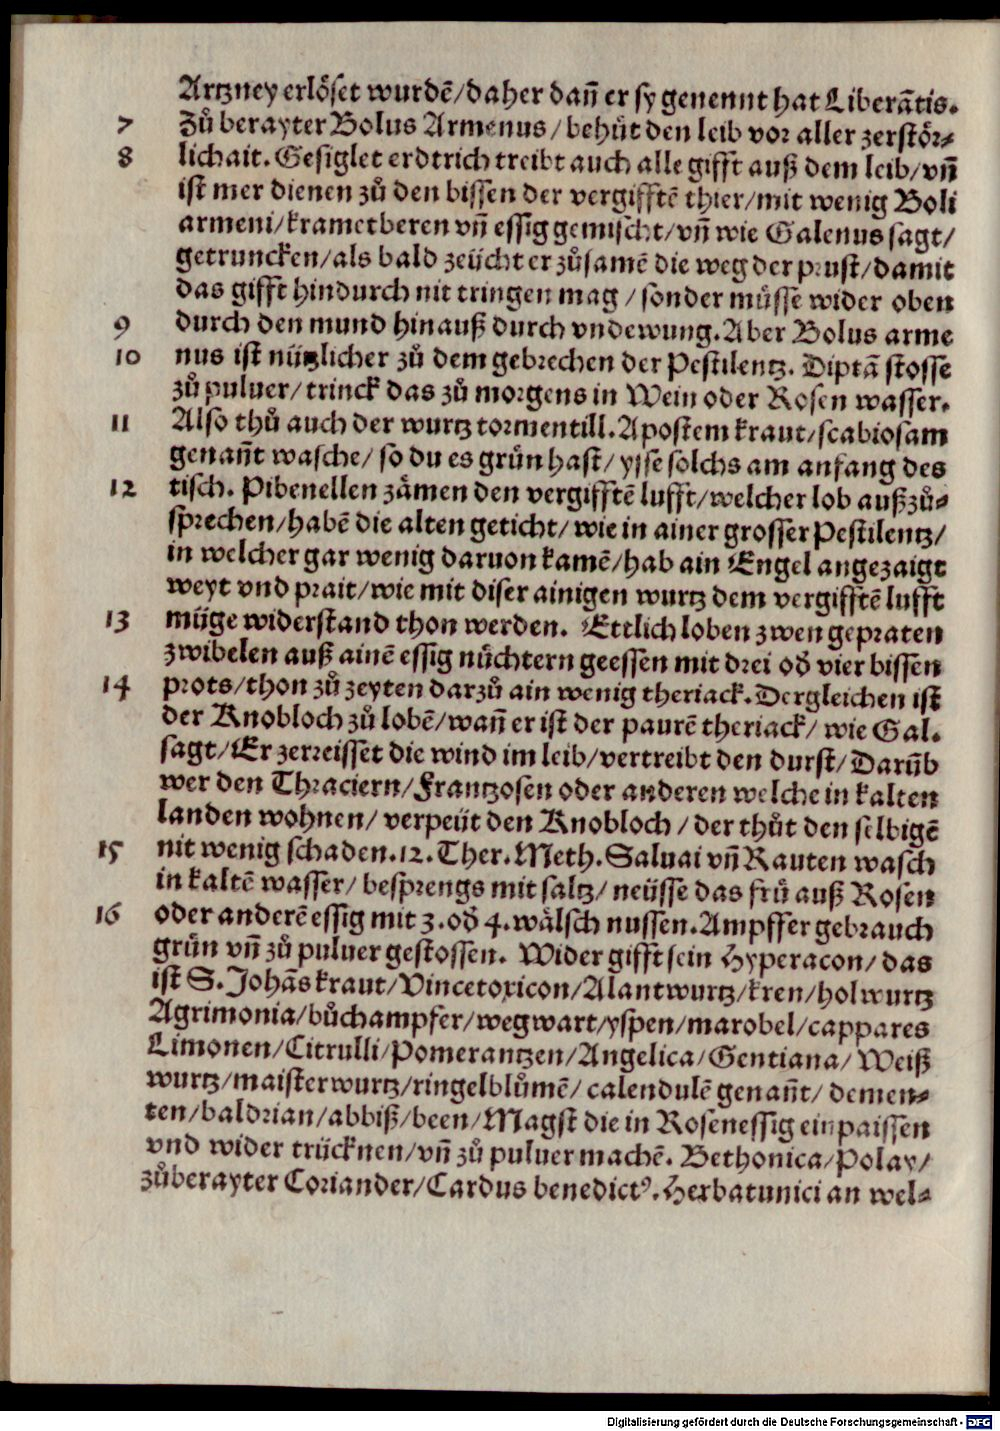 Artzney erlöset wurdē/daher dañ er sy genennt hat Liberātis.
7 Zů berayter Bolus Armenus/behůt den leib vor aller zerstör⸗
8 lichait. Gesiglet erdtrich treibt auch alle gifft auß dem leib/vñ
ist mer dienen zů den bissen der vergifftē thier/mit wenig Boli
armeni/krametberen vñ essig gemischt/vñ wie Galenus sagt/
getruncken/als bald zeücht er zůsamē die weg der prust/damit
das gifft hindurch nit tringen mag/sonder müsse wider oben
9 durch den mund hinauß durch vndewung. Aber Bolus arme
10 nus ist nützlicher zů dem gebrechen der Pestilentz. Diptā stosse
zů puluer/trinck das zů morgens in Wein oder Rosen wasser.
11 Also thů auch der wurtz tormentill. Apostem kraut/scabiosam
genañt wasche/so du es grün hast/ysse solchs am anfang des
12 tisch. Pibenellen zämen den vergifftē lufft/welcher lob außzů⸗
sprechen/habē die alten geticht/wie in ainer grosser Pestilentz/
in welcher gar wenig daruon kamē/hab ain Engel angezaigt
weyt vnd prait/wie mit diser ainigen wurtz dem vergifftē lufft
13 müge widerstand thon werden. Ettlich loben zwen gepraten
zwibelen auß ainē essig nüchtern geessen mit drei oď vier bissen
14 prots/thon zů zeyten darzů ain wenig theriack. Dergleichen ist
der Knobloch zů lobē/wañ er ist der paurē theriack/wie Gal.
sagt/Er zerreisset die wind im leib/vertreibt den durst/Darūb
wer den Thraciern/Frantzosen oder anderen welche in kalten
landen wohnen/verpeüt den Knobloch/der thůt den selbigē
15 nit wenig schaden. 12. Ther. Meth. Saluai vñ Rauten wasch
in kaltē wasser/besprengs mit saltz/neüsse das frů auß Rosen
16 oder anderē essig mit 3. oď 4. wälsch nussen. Ampffer gebrauch
grün vñ zů puluer gestossen. Wider gifft sein Hyperacon/das
ist S. Johās kraut/Vincetoxicon/Alantwurtz/kren/holwurtz
Agrimonia/bůchampfer/wegwart/yspen/marobel/cappares
Limonen/Citrulli/Pomerantzen/Angelica/Gentiana/Weiß
wurtz/maisterwurtz/ringelblůmē/calendulē genañt/demen⸗
ten/baldrian/abbiß/been/Magst die in Rosenessig einpaissen
vnd wider trücknen/vñ zů puluer machē. Bethonica/Polay/
zůberayter Coriander/Cardus benedictꝰ. Herbatunici an wel⸗
Digitalisierung gefördert durch die Deutsche Forschungsgemeinschaft - DFG